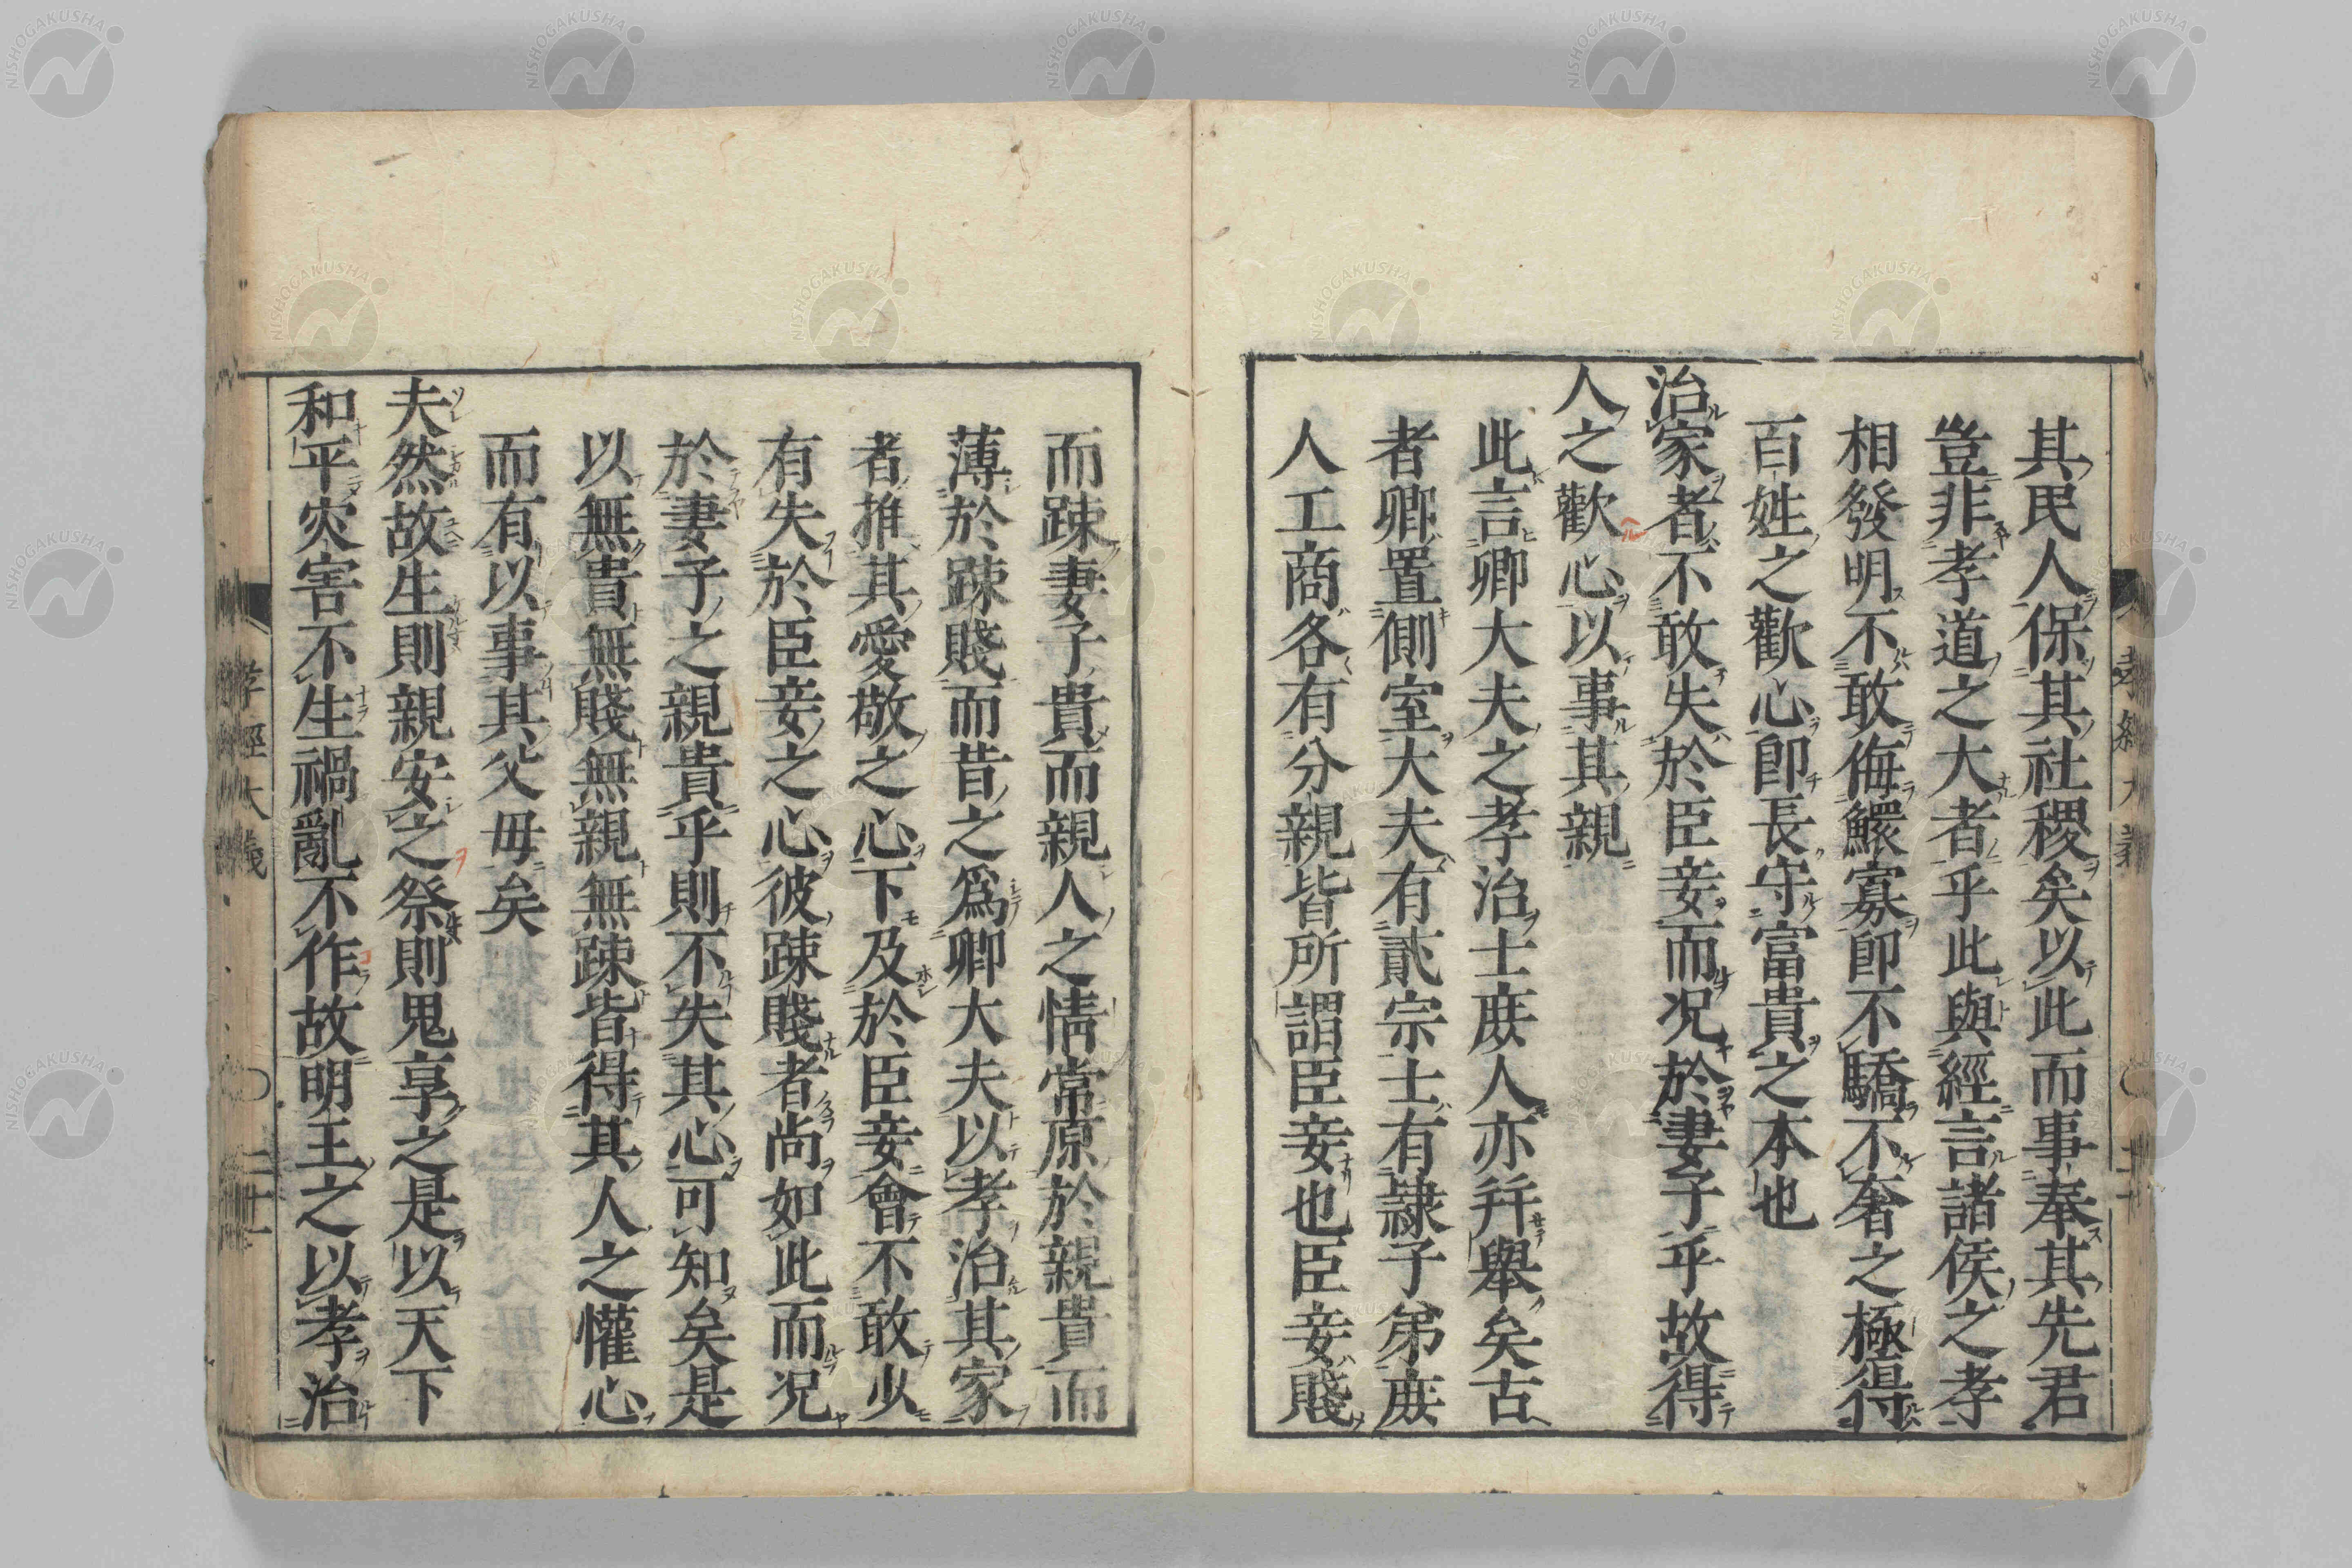 其民人保其社稷矣以此而事奉其先君
豈非孝道之大者乎此與經言諸侯之孝
相發明不敢侮鰥寡卽不驕不奢之極得
百姓之歡心卽長守富貴之本也
治家者不敢失於臣妾而況於妻子乎故得
人之歡心以事其親
此言卿大夫之孝治士庻人亦幷舉矣古
者卿置側室大夫有貳宗士有隷子弟庻
人工商各有分親皆所謂臣妾也臣妾賤
而踈妻子貴而親人之情常原於親貴而
薄於踈賤而昔之爲卿大夫以孝治其家
者推其愛敬之心下及於臣妾會不敢少
有失於臣妾之心彼踈賤者尚如此而况
於妻子之親貴乎則不失其心可知矣是
以無貴無賤無親無踈皆得其人之懽心
而有以事其父毋矣
夫然故生則親安之祭則鬼享之是以天下
和平灾害不生禍亂不作故明王之以孝治
孝經大義
二十一
NISHOGAKUSHA